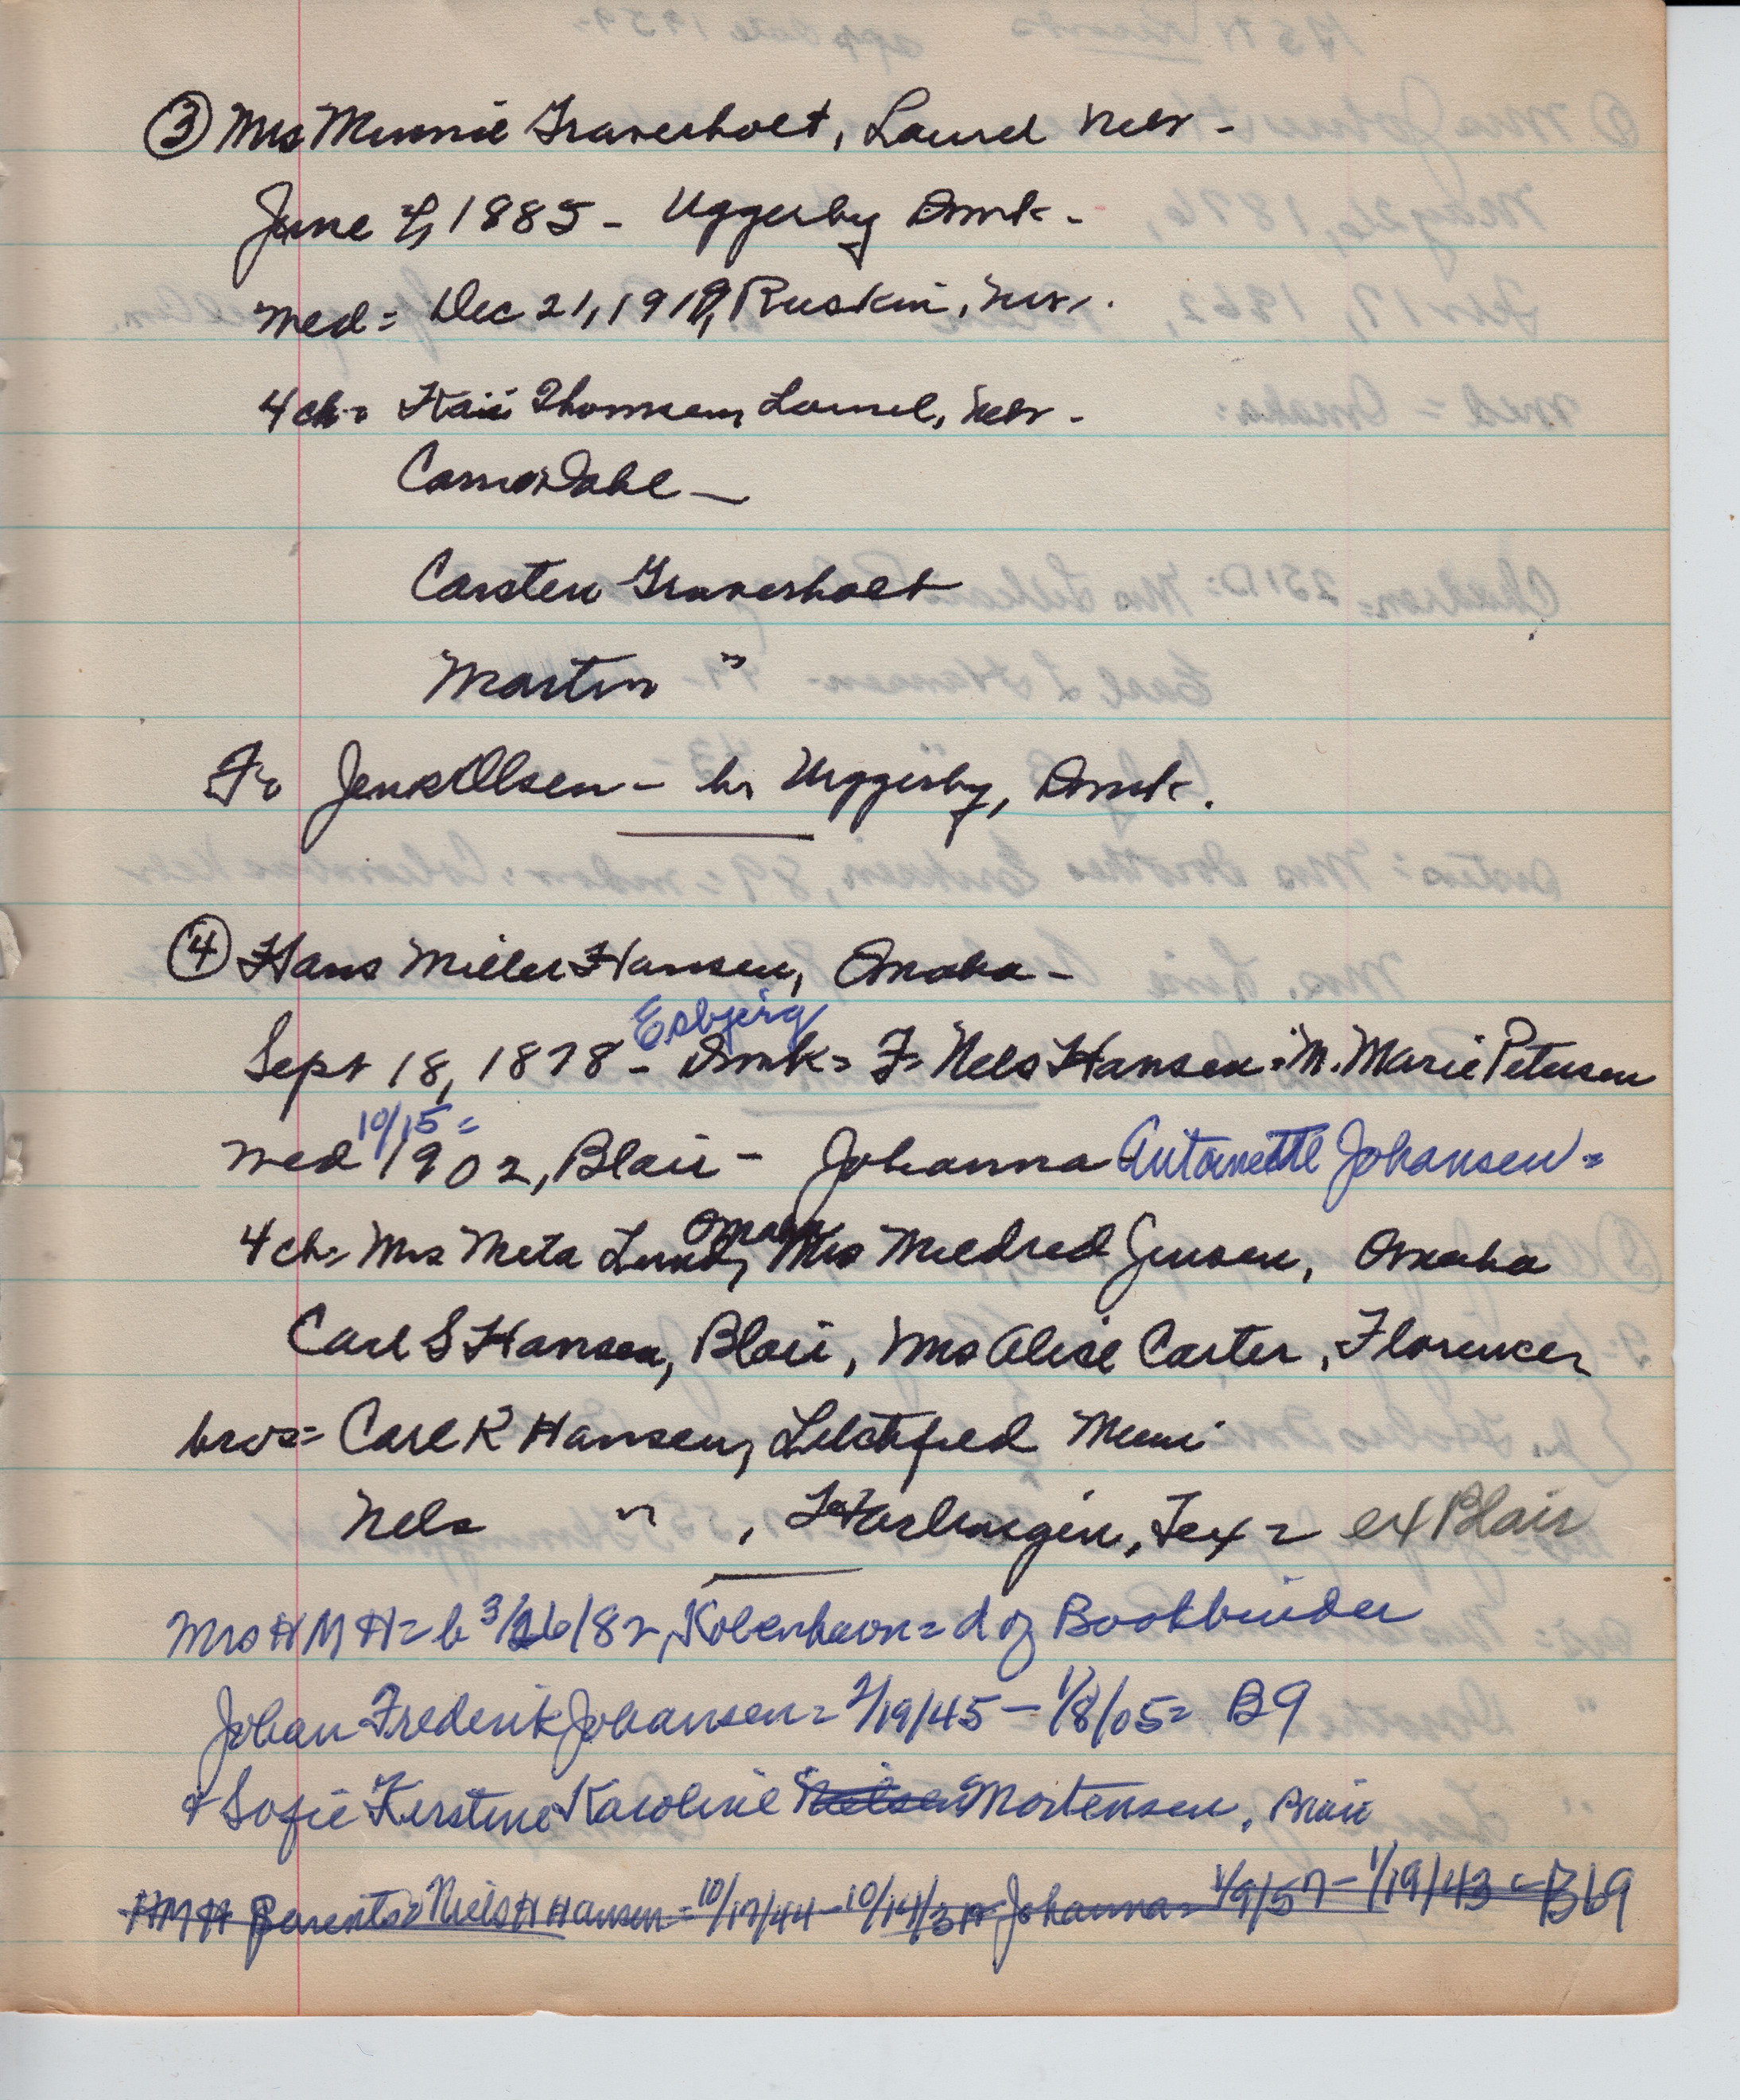 ③ Mrs Minnie Graversholt, Laurel Nebr -
June 7, 1885 - Uggerby Dmk -
Med = Dec 21, 1919, Ruskin, Nebr.
4 ch = Thomsen, Laurel, Nebr -
Dahl -
Carsten Graversholt
Martin "
F = Jens Olsen - br Uggerby, Dmk.
④ Hans Miller Hansen, Omaha -
Esbjerg
Sept 18, 1878 - Dmk = F = Nels Hansen = M. Marie Petersen
10/15 =
Med 1902, Blair - Johanna Antoinette Johansen =
Omaha
4 ch = Mrs Meta Lund, Mrs Mildred Jensen, Omaha
Carl S Hansen, Blair, Mrs Alise Carter, Florence
bros = Carl K Hansen, Litchfield Minn
Nels " , Harlingen, Tex = ex Blair
Mrs H M H = b 3/26/82, Kobenhavn = d of Bookbinder
Johan Frederik Johansen = 2/19/45 - 1/8/05 = B9
& Sofie Kirstine Karoline Nielsen Mortensen, Blair
HMH Parents = Niels H Hansen = 10/17/44 - 10/14/3 Johanna = 1/9/57 - 1/19/43 = B69